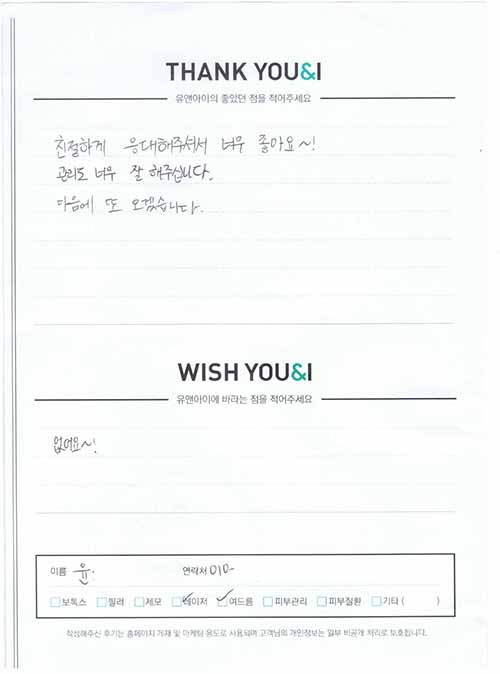 THANK YOU&I
유앤아이의 좋았던 점을 적어주세요
친절하게 응대해주셔서 너무 좋아요~!
관리도 너무 잘 해주십니다.
다음에 또 오겠습니다.
WISH YOU&I
유앤아이에 바라는 점을 적어주세요
없어요~!
이름 윤. 연락처 010-
보톡스 필러 제모 레이저 여드름 피부관리 피부질환 기타 ( )
작성해주신 후기는 홈페이지 게재 및 마케팅 용도로 사용되며 고객님의 개인정보는 일부 비공개 처리로 보호됩니다.